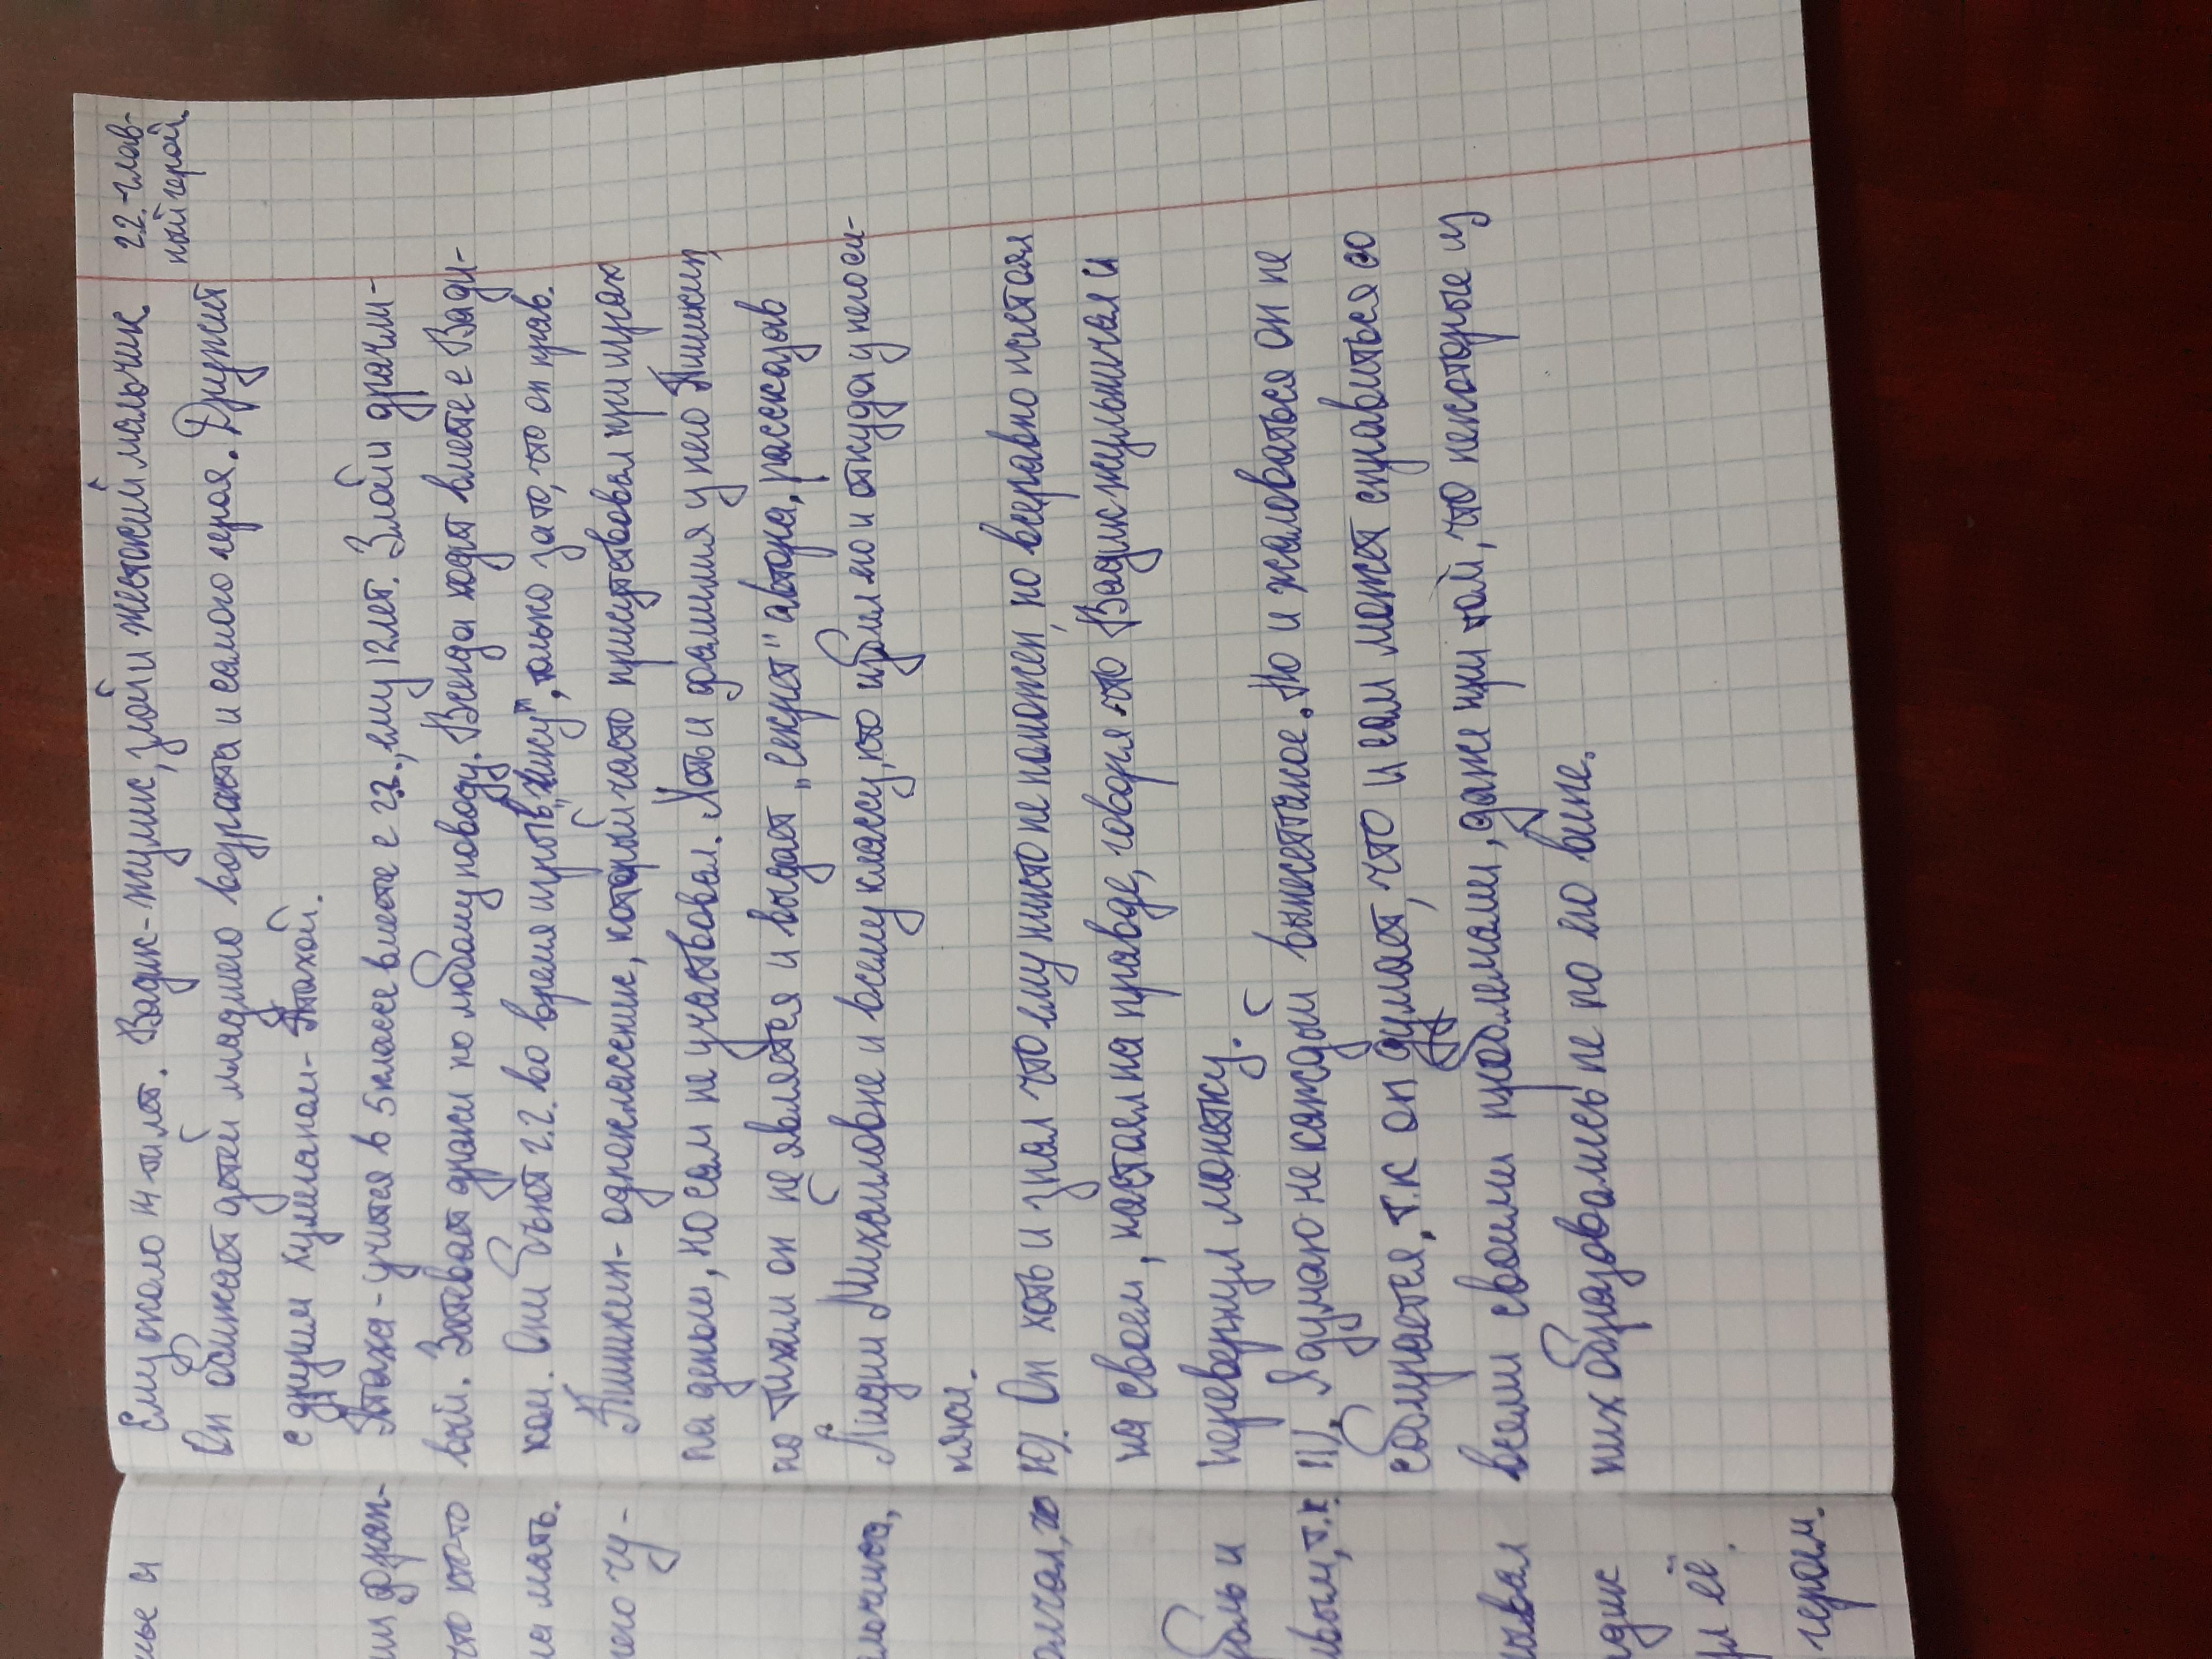 г.г.-глав-
ный герой.
Ему около 14-ти лет. Вадик-жулик, злой и жестокий мальчик.
Он обижает детей младшего возраста и самого героя. Дружит
с другим хулиганом-Птахой.
Птаха-учится в 5 классе вместе с г.г., ему 12 лет. Злой и драчли-
вый. Затевает драки по любому поводу. Всегда ходит вместе с Вади-
ком. Они бьют г.г. во время игры в "чику", только за то, что он прав.
Тишкин- одноклассник, который часто присутствовал при играх
на деньги, но сам не участвовал. Хоть и фамилия у него Тишкин,
но тихим он не является и выдаёт „секрет" автора, рассказав
Лидии Михайловне и всему классу, кто избил его и откуда у него си-
няки.
10/. Он хоть и знал что ему никто не поможет, но всеравно настоял
на своем, настоял на правде, говоря что Вадик жульничая и
перевернул монетку.
11/. Я думаю не каждый вынес такое. Но и жаловаться он не
собирается, т.к он думает, что и сам может справиться со
всеми своими проблемами, даже при том, что некоторые из
них образовались не по его вине.
ные и
что кто-то
ла мать.
него чу-
льчика,
олчал, то
боль и
ивым, т.к
ывал
адик
ул её.
героем.